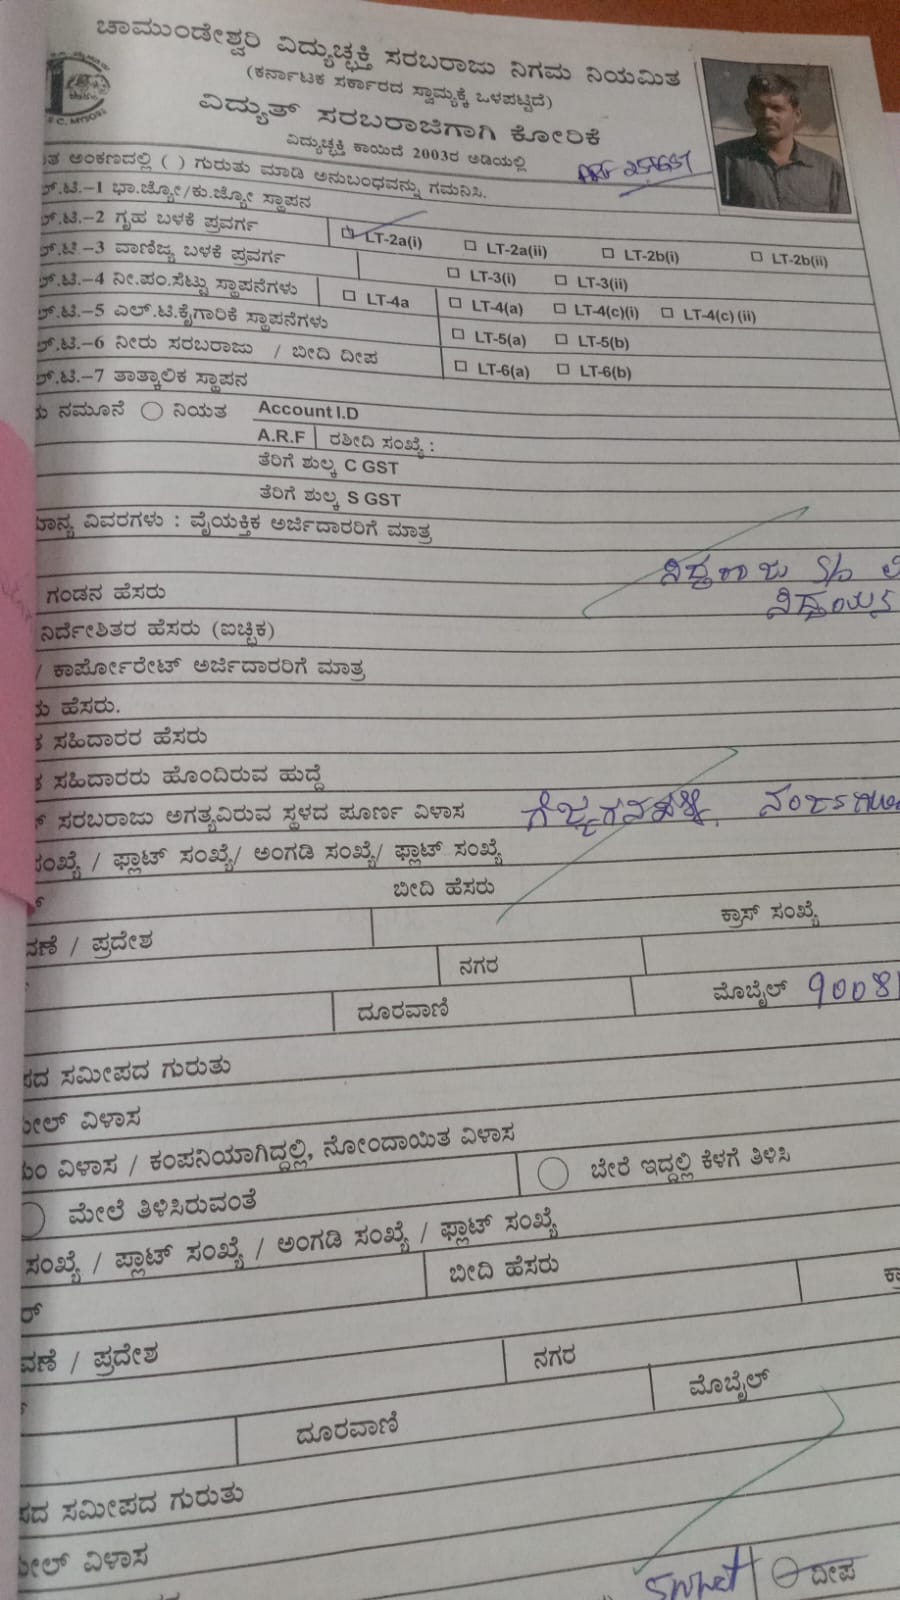 ಚಾಮುಂಡೇಶ್ವರಿ ವಿದ್ಯುಚ್ಛಕ್ತಿ ಸರಬರಾಜು ನಿಗಮ ನಿಯಮಿತ
(ಕರ್ನಾಟಕ ಸರ್ಕಾರದ ಸ್ವಾಮ್ಯಕ್ಕೆ ಒಳಪಟ್ಟಿದೆ)
ವಿದ್ಯುತ್ ಸರಬರಾಜಿಗಾಗಿ ಕೋರಿಕೆ
ವಿದ್ಯುಚ್ಛಕ್ತಿ ಕಾಯಿದೆ 2003ರ ಅಡಿಯಲ್ಲಿ
ಅಂಕಣದಲ್ಲಿ ( ) ಗುರುತು ಮಾಡಿ ಅನುಬಂಧವನ್ನು ಗಮನಿಸಿ.
.ಟಿ.-1 ಭಾ.ಜ್ಯೋ/ಕು.ಜ್ಯೋ ಸ್ಥಾಪನ
.ಟಿ.-2 ಗೃಹ ಬಳಕೆ ಪ್ರವರ್ಗ LT-2a(i) LT-2a(ii) LT-2b(i) LT-2b(ii)
.ಟಿ.-3 ವಾಣಿಜ್ಯ ಬಳಕೆ ಪ್ರವರ್ಗ LT-3(i) LT-3(ii)
.ಟಿ.-4 ನೀ.ಪಂ.ಸೆಟ್ಟು ಸ್ಥಾಪನೆಗಳು LT-4a LT-4(a) LT-4(c)(i) LT-4(c) (ii)
.ಟಿ.-5 ಎಲ್.ಟಿ.ಕೈಗಾರಿಕೆ ಸ್ಥಾಪನೆಗಳು LT-5(a) LT-5(b)
.ಟಿ.-6 ನೀರು ಸರಬರಾಜು / ಬೀದಿ ದೀಪ LT-6(a) LT-6(b)
.ಟಿ.-7 ತಾತ್ಕಾಲಿಕ ಸ್ಥಾಪನ
ನಮೂನೆ ನಿಯತ Account I.D
A.R.F ರಶೀದಿ ಸಂಖ್ಯೆ :
ತೆರಿಗೆ ಶುಲ್ಕ C GST
ತೆರಿಗೆ ಶುಲ್ಕ S GST
ವಿವರಗಳು : ವೈಯಕ್ತಿಕ ಅರ್ಜಿದಾರರಿಗೆ ಮಾತ್ರ
ಗಂಡನ ಹೆಸರು
ನಿರ್ದೇಶಿತರ ಹೆಸರು (ಐಚ್ಛಿಕ)
/ ಕಾರ್ಪೋರೇಟ್ ಅರ್ಜಿದಾರರಿಗೆ ಮಾತ್ರ
ಹೆಸರು.
ಸಹಿದಾರರ ಹೆಸರು
ಸಹಿದಾರರು ಹೊಂದಿರುವ ಹುದ್ದೆ
ಸರಬರಾಜು ಅಗತ್ಯವಿರುವ ಸ್ಥಳದ ಪೂರ್ಣ ವಿಳಾಸ
ಸಂಖ್ಯೆ / ಫ್ಲಾಟ್ ಸಂಖ್ಯೆ/ ಅಂಗಡಿ ಸಂಖ್ಯೆ/ ಫ್ಲಾಟ್ ಸಂಖ್ಯೆ
ಬೀದಿ ಹೆಸರು
/ ಪ್ರದೇಶ ಕ್ರಾಸ್ ಸಂಖ್ಯೆ
ನಗರ
ದೂರವಾಣಿ ಮೊಬೈಲ್ 9008
ಸಮೀಪದ ಗುರುತು
ವಿಳಾಸ
ವಿಳಾಸ / ಕಂಪನಿಯಾಗಿದ್ದಲ್ಲಿ, ನೋಂದಾಯಿತ ವಿಳಾಸ
ಮೇಲೆ ತಿಳಿಸಿರುವಂತೆ ಬೇರೆ ಇದ್ದಲ್ಲಿ ಕೆಳಗೆ ತಿಳಿಸಿ
ಸಂಖ್ಯೆ / ಪ್ಲಾಟ್ ಸಂಖ್ಯೆ / ಅಂಗಡಿ ಸಂಖ್ಯೆ / ಫ್ಲಾಟ್ ಸಂಖ್ಯೆ
ಬೀದಿ ಹೆಸರು
/ ಪ್ರದೇಶ
ನಗರ
ದೂರವಾಣಿ ಮೊಬೈಲ್
ಸಮೀಪದ ಗುರುತು
ವಿಳಾಸ
ದೀಪ